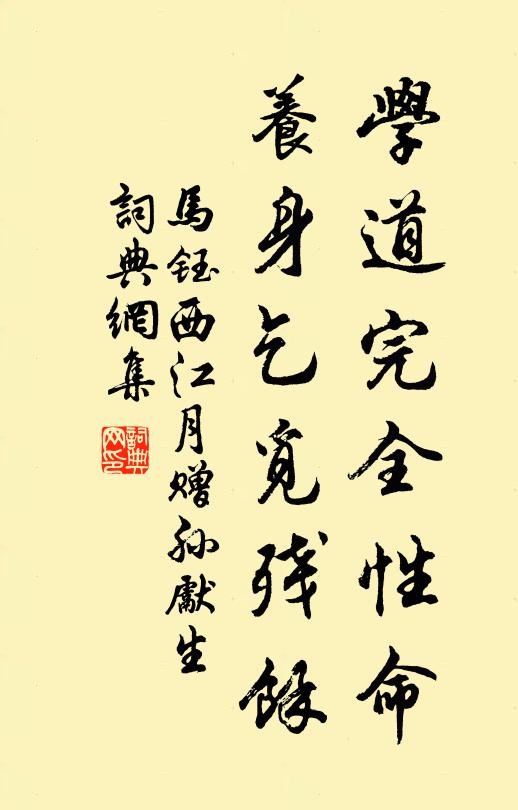 學道完全性命
養身乞覓残餘
馬鈺西江月贈孙獻生
詞典網集
詞典網印